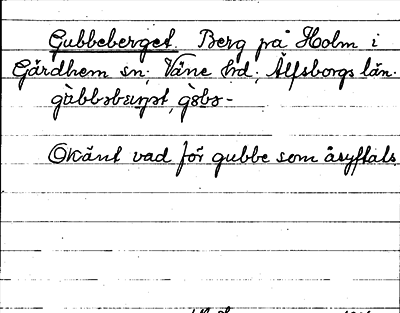 Gubbeberget. Berg på Holm i
Gärdhem sn; Väne hd; Älfsborgs län.
Okänt vad för gubbe som åsyftas